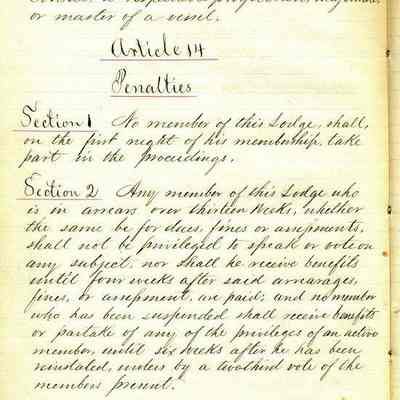 or master of a vessel.
Article 14
Penalties
Section 1 No member of this Lodge, shall,
on the first night of his membership, take
part in the proceedings.
Section 2 Any member of this Lodge who
is in arrears over thirteen weeks, whether
the same be for dues, fines or assessments,
shall not be privileged to speak or vote on
any subject, nor shall he receive benefits
until four weeks after said arrearages,
fines, or assessment, are paid; and no member
who has been suspended shall receive benefits
or partake of any of the privileges of an active
member, until six weeks after he has been
reinstated, unless by a twothird vote of the
members present.